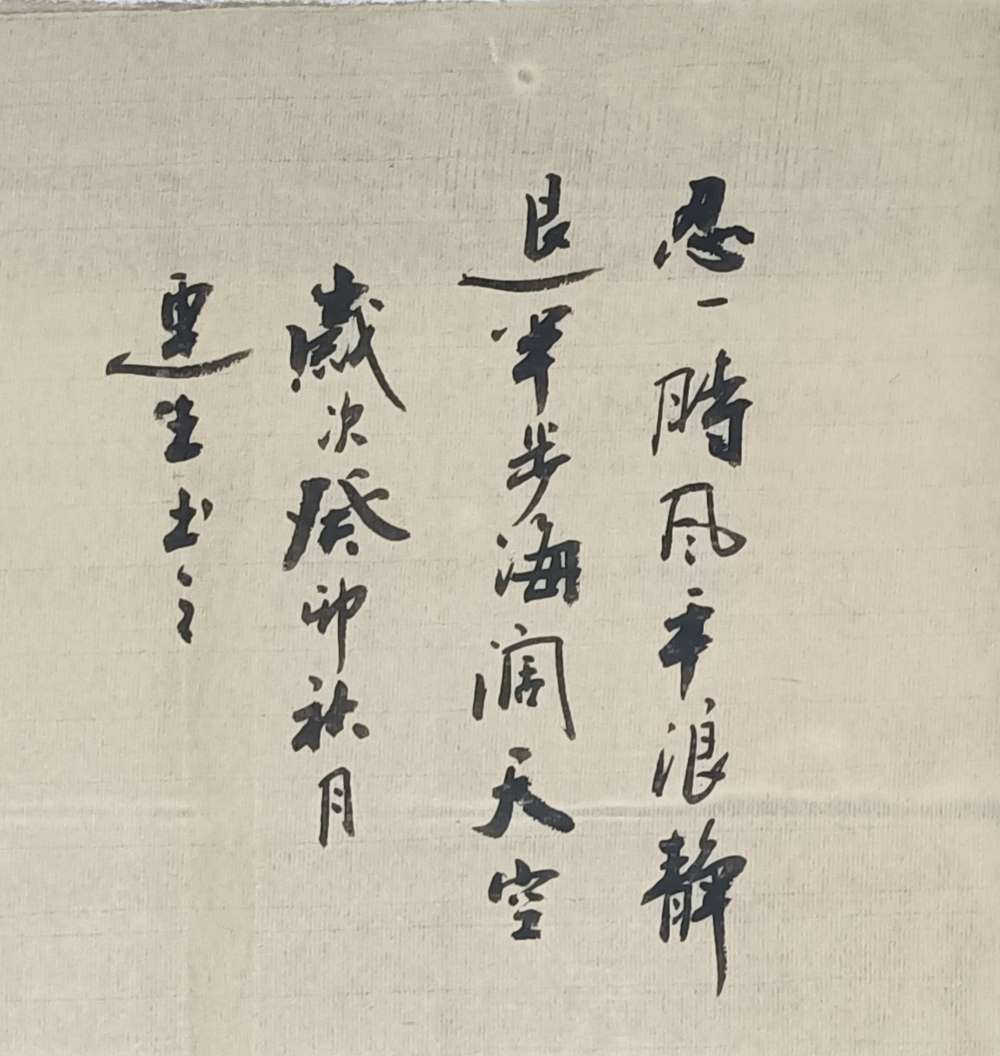 忍一時风平浪靜
退半步海阔天空
歲次癸卯秋月
運生书之